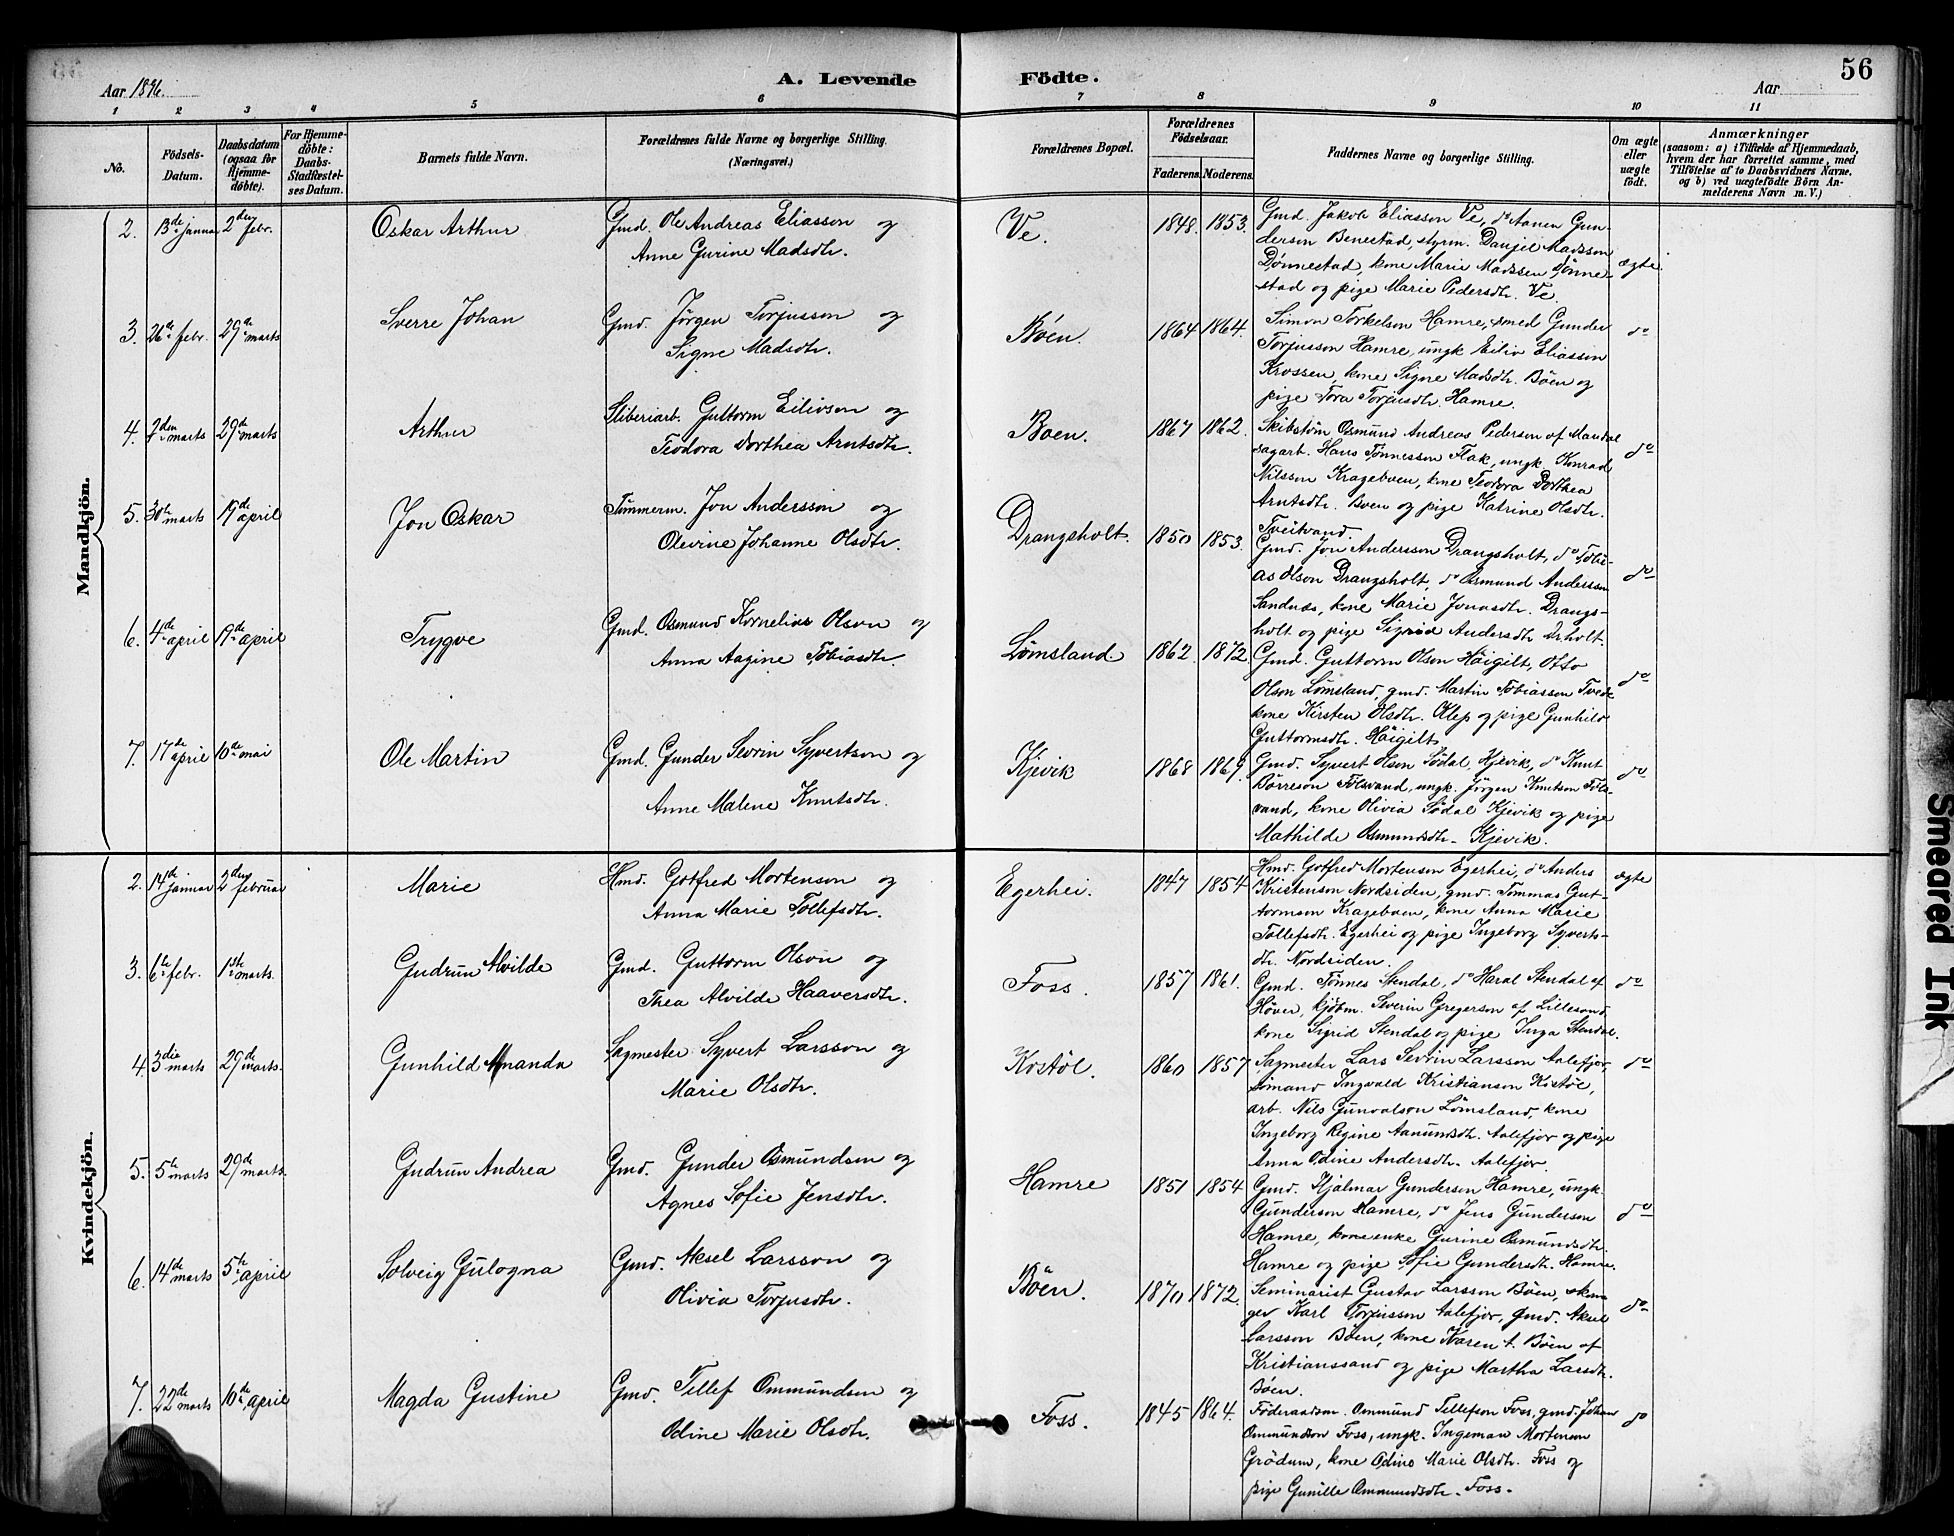 56
Aar 1896.
A. Levende
Födte.
Aar
1 2 3 4 5 6 7 8 9 10 11
No.
Födsels-Datum.
Daabsdatum (ogsaa for Hjemmedöbte).
For Hjemmedöbte: Daabs-Stadfæstelses Datum.
Barnets fulde Navn.
Forældrenes fulde Navne og borgerlige Stilling. (Næringsvei.)
Forældrenes Bopæl.
Forældrenes Födselsaar.
Faderens. Moderens.
Faddernes Navne og borgerlige Stilling.
Om ægte eller uægte født.
Anmærkninger
(saasom: a) i Tilfælde af Hjemmedaab,
hvem der har forrettet samme, med
Tilföielse af to Daabsvidners Navne,
og b) ved uægtefödte Börn Anmelderens Navn m. V.)
Mandkjön.
2. 13de januar 2den febr. Oskar Arthur Gmd. Ole Andreas Eliasson og
Anne Gurine Madsdtr.
Ve. 1848. 1853.
Gmd. Jakob Eliasson Ve, do Aanen Gun-
derson Benestad, styrm. Danjel Madsson
Dønnestad, kone Marie Madssen Dønne-
stad og pige Marie Pedersdtr. Ve.
ægte.
3. 26de febr. 29de marts Sverre Johan Gmd. Jørgen Torjusson og
Signe Madsdtr.
Böen. 1864 1864.
Simon Torkelson Hamre, smed Gunder
Torjusson Hamre, ungk Eiliv Eliasson
Krossen, kone Signe Madsdtr. Böen og
pige Tora Torjusdtr. Hamre.
do
4. 7den marts 29de marts Arthur Sliberiarb. Guttorm Eilivson og
Teodora Dorthea Arntsdtr.
Boen. 1867 1862.
Skibstøm Osmund Andreas Pederson af Mandal
sagarb. Hans Tønnesson Flak, ungk Konrad
Nilsson Krageboen, kone Teodora Dorthea
Arntsdtr. Boen og pige Katrine Olsdtr.
Tveitvand.
do
5. 30te marts 19de april Jon Oskar Tømmerm. Jon Andersson og
Olevine Johanne Olsdtr.
Drangsholt. 1850 1853.
Gmd. Jon Andersson Drangsholt, do Tobi-
as Olson Drangsholt, do Osmund Anderson
Sandnes, kone Marie Jonasdtr. Drangs-
holt og pige Sigrid Andersdtr Dr.holt.
do
6. 4de april 19de april Trygve Gmd. Osmund Kornelius Olson og
Anna Aagine Tobiasdtr.
Lømsland. 1862. 1872.
Gmd. Guttorm Olson Höigilt, Otto
Olson Lømsland, gmd. Martin Tobiasson Tveit
kone Kirsten Olsdtr. Klep og pige Gunhild
Guttormsdtr. Höigilt.
do
7. 17de april 10de mai Ole Martin Gmd. Gunder Sevrin Syvertson og
Anne Malene Knutsdtr.
Kjevik 1868 1869.
Gmd. Syvert Olson Sødal, Kjevik, do Knut
Börreson Følsvand, ungk. Jörgen Knutson Føls-
vand, kone Olivia Sødal Kjevik og pige
Mathilde Osmundsdtr. Kjevik.
do
Kvindekjön.
2. 14de januar 2den februar Marie Hmd. Gotfred Mortenson og
Anna Marie Tollefsdtr.
Egerhei. 1847 1854
Hmd. Gotfred Mortenson Egerhei, do Anders
Kristenson Nordsiden, gmd. Tommas Gut-
tormson Krageboen, kone Anna Marie
Tollefsdtr. Egerhei og pige Ingeborg Syverts-
dtr. Nordsiden.
ægte
3. 6te febr. 1ste marts. Gudrun Alvilde Gmd. Guttorm Olson og
Thea Alvilde Haaversdtr.
Foss. 1857 1861.
Gmd. Tønnes Stendal, do Haral Stendal af
Høver, kjøbm. Severin Gregerson af Lillesand
kone Sigrid Stendal og pige Inga Stendal.
do
4. 3die marts 29de marts. Gunhild Amanda Sagmester Syvert Larsson og
Marie Olsdtr.
Kostöl. 1860 1857
Sagmester Lars Sevrin Larsson Aalefjær,
sömand Ingvald Kristianson Kostöl,
arb. Nils Gunvalson Lömsland, kone
Ingeborg Regine Aanundsdtr. Aalefjær og pige
Anna Odine Andersdtr. Aalefjær.
do
5. 5te marts 29de marts. Gudrun Andrea Gmd. Gunder Osmundson og
Agnes Sofie Jensdtr.
Hamre 1851 1854
Gmd. Hjalmar Gunderson Hamre, ungk.
Gunderson Hamre, do Jens Gunderson
Hamre, kone enke Gurine Osmundsdtr.
Hamre og pige Sofie Gundersdtr. Hamre.
do
6. 14de marts 5te april Solveig Gulogna Gmd. Aksel Larsson og
Olivia Torjusdtr.
Böen. 1870 1872.
Seminarist Gustav Larsson Böen,
Karl Torjusson Aalefjær, Gmd. Aksel
Larsson Böen, kone Karen t. Böen af
Kristianssand og pige Martha Larsdtr.
Böen.
do
7. 22de marts 10de april Magda Gustine Gmd. Tellef Ommundson og
Odine Marie Olsdtr.
Foss. 1845 1864.
Föderaadsm. Ommund Tellefson Foss, gmd. Johan
Ommundson Foss, ungk. Ingeman Mortenson
Grödum, kone Odine Marie Olsdtr. Foss og
pige Gunille Ommundsdtr. Foss.
do
Smeared Ink